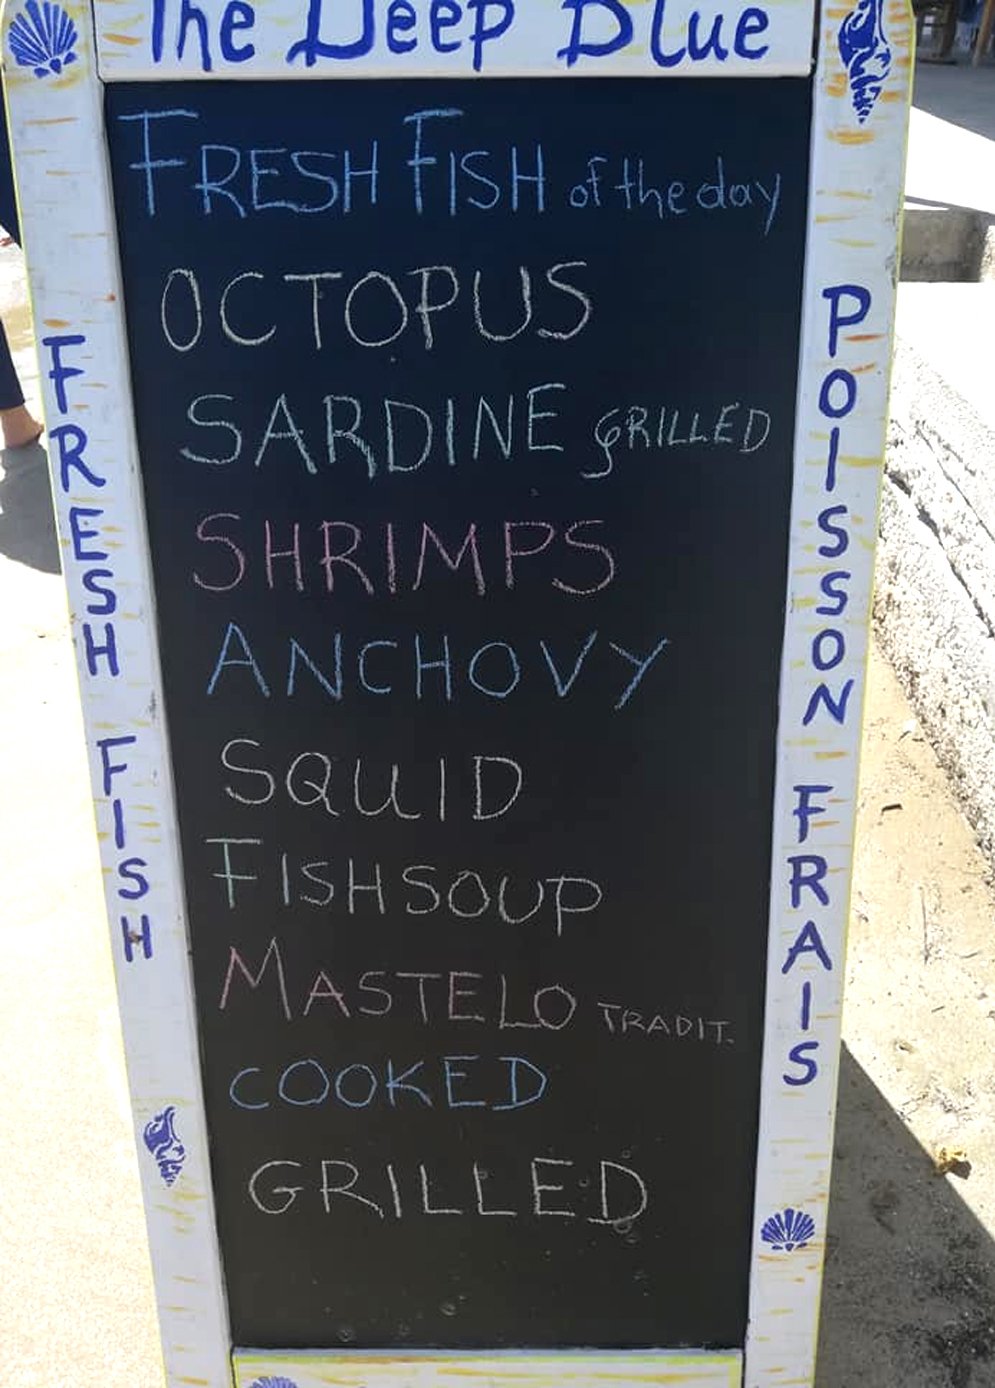 The Deep Blue
FRESH FISH of the day
OCTOPUS
SARDINE GRILLED
SHRIMPS
ANCHOVY
SQUID
FISHSOUP
MASTELO TRADIT.
COOKED
GRILLED
FRESH FISH
POISSON FRAIS